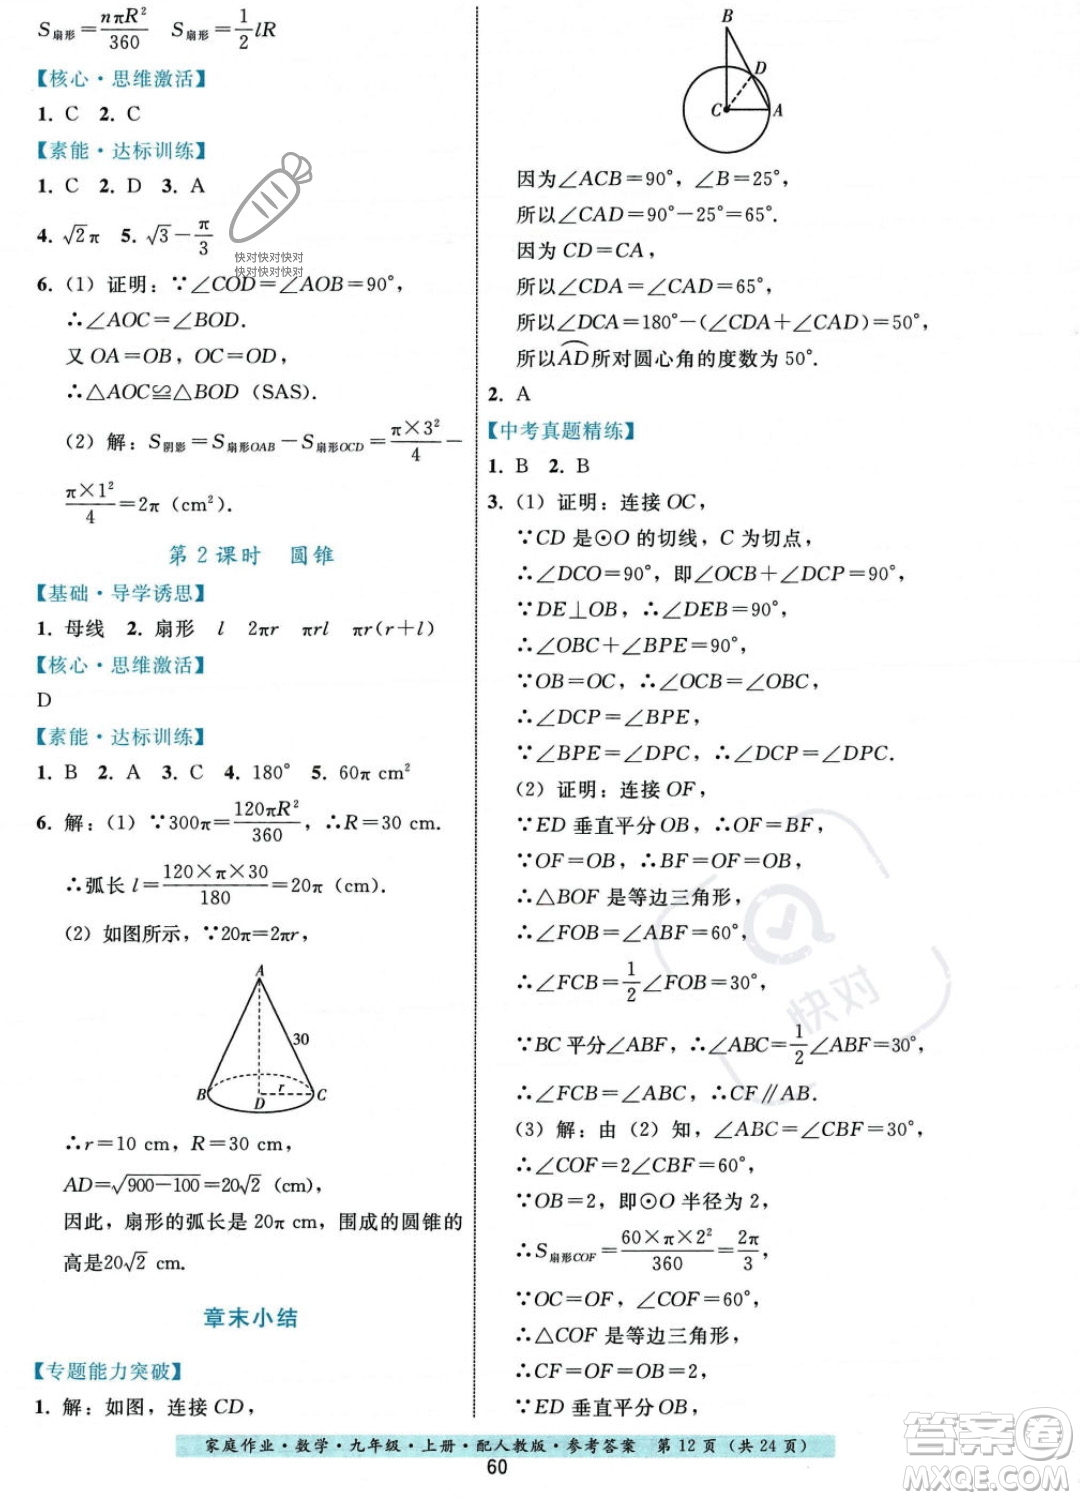 S扇形=nπR²/360  S扇形=1/2 lR
【核心·思维激活】
1. C  2. C
【素能·达标训练】
1. C  2. D  3. A
4. √2π  5. √3－π/3
快对快对快对
快对快对快对
6. (1) 证明：∵∠COD=∠AOB=90°，
∴∠AOC=∠BOD.
又 OA=OB，OC=OD，
∴△AOC≌△BOD (SAS).
(2) 解：S阴影=S扇形OAB－S扇形OCD=π×3²/4－
π×1²/4=2π (cm²).
第 2 课时  圆锥
【基础·导学诱思】
1. 母线  2. 扇形  l  2πr  πrl  πr(r+l)
【核心·思维激活】
D
【素能·达标训练】
1. B  2. A  3. C  4. 180°  5. 60π cm²
6. 解：(1) ∵300π=120πR²/360，∴R=30 cm.
∴弧长 l=120×π×30/180=20π (cm).
(2) 如图所示，∵20π=2πr，
A
30
B
r
D
C
∴r=10 cm，R=30 cm，
AD=√(900－100)=20√2 (cm)，
因此，扇形的弧长是 20π cm，围成的圆锥的
高是20√2 cm.
章末小结
【专题能力突破】
1. 解：如图，连接 CD，
B
D
C
A
因为∠ACB=90°，∠B=25°，
所以∠CAD=90°－25°=65°.
因为 CD=CA，
所以∠CDA=∠CAD=65°，
所以∠DCA=180°－(∠CDA+∠CAD)=50°，
所以⌒AD所对圆心角的度数为 50°.
2. A
【中考真题精练】
1. B  2. B
3. (1) 证明：连接 OC，
∵CD 是⊙O 的切线，C 为切点，
∴∠DCO=90°，即∠OCB+∠DCP=90°，
∵DE⊥OB，∴∠DEB=90°，
∴∠OBC+∠BPE=90°，
∵OB=OC，∴∠OCB=∠OBC，
∴∠DCP=∠BPE，
∵∠BPE=∠DPC，∴∠DCP=∠DPC.
(2) 证明：连接 OF，
∵ED 垂直平分 OB，∴OF=BF，
∵OF=OB，∴BF=OF=OB，
∴△BOF 是等边三角形，
∴∠FOB=∠ABF=60°，
∴∠FCB=1/2∠FOB=30°，
∵BC 平分∠ABF，∴∠ABC=1/2∠ABF=30°，
∴∠FCB=∠ABC，∴CF∥AB.
(3) 解：由 (2) 知，∠ABC=∠CBF=30°，
∴∠COF=2∠CBF=60°，
∵OB=2，即⊙O 半径为 2，
∴S扇形COF=60×π×2²/360=2π/3，
∵OC=OF，∠COF=60°，
∴△COF 是等边三角形，
∴CF=OF=OB=2，
∵ED 垂直平分 OB，
快对
家庭作业·数学·九年级·上册·配人教版·参考答案  第 12 页（共 24 页）
60
答案圈
MXQE.COM